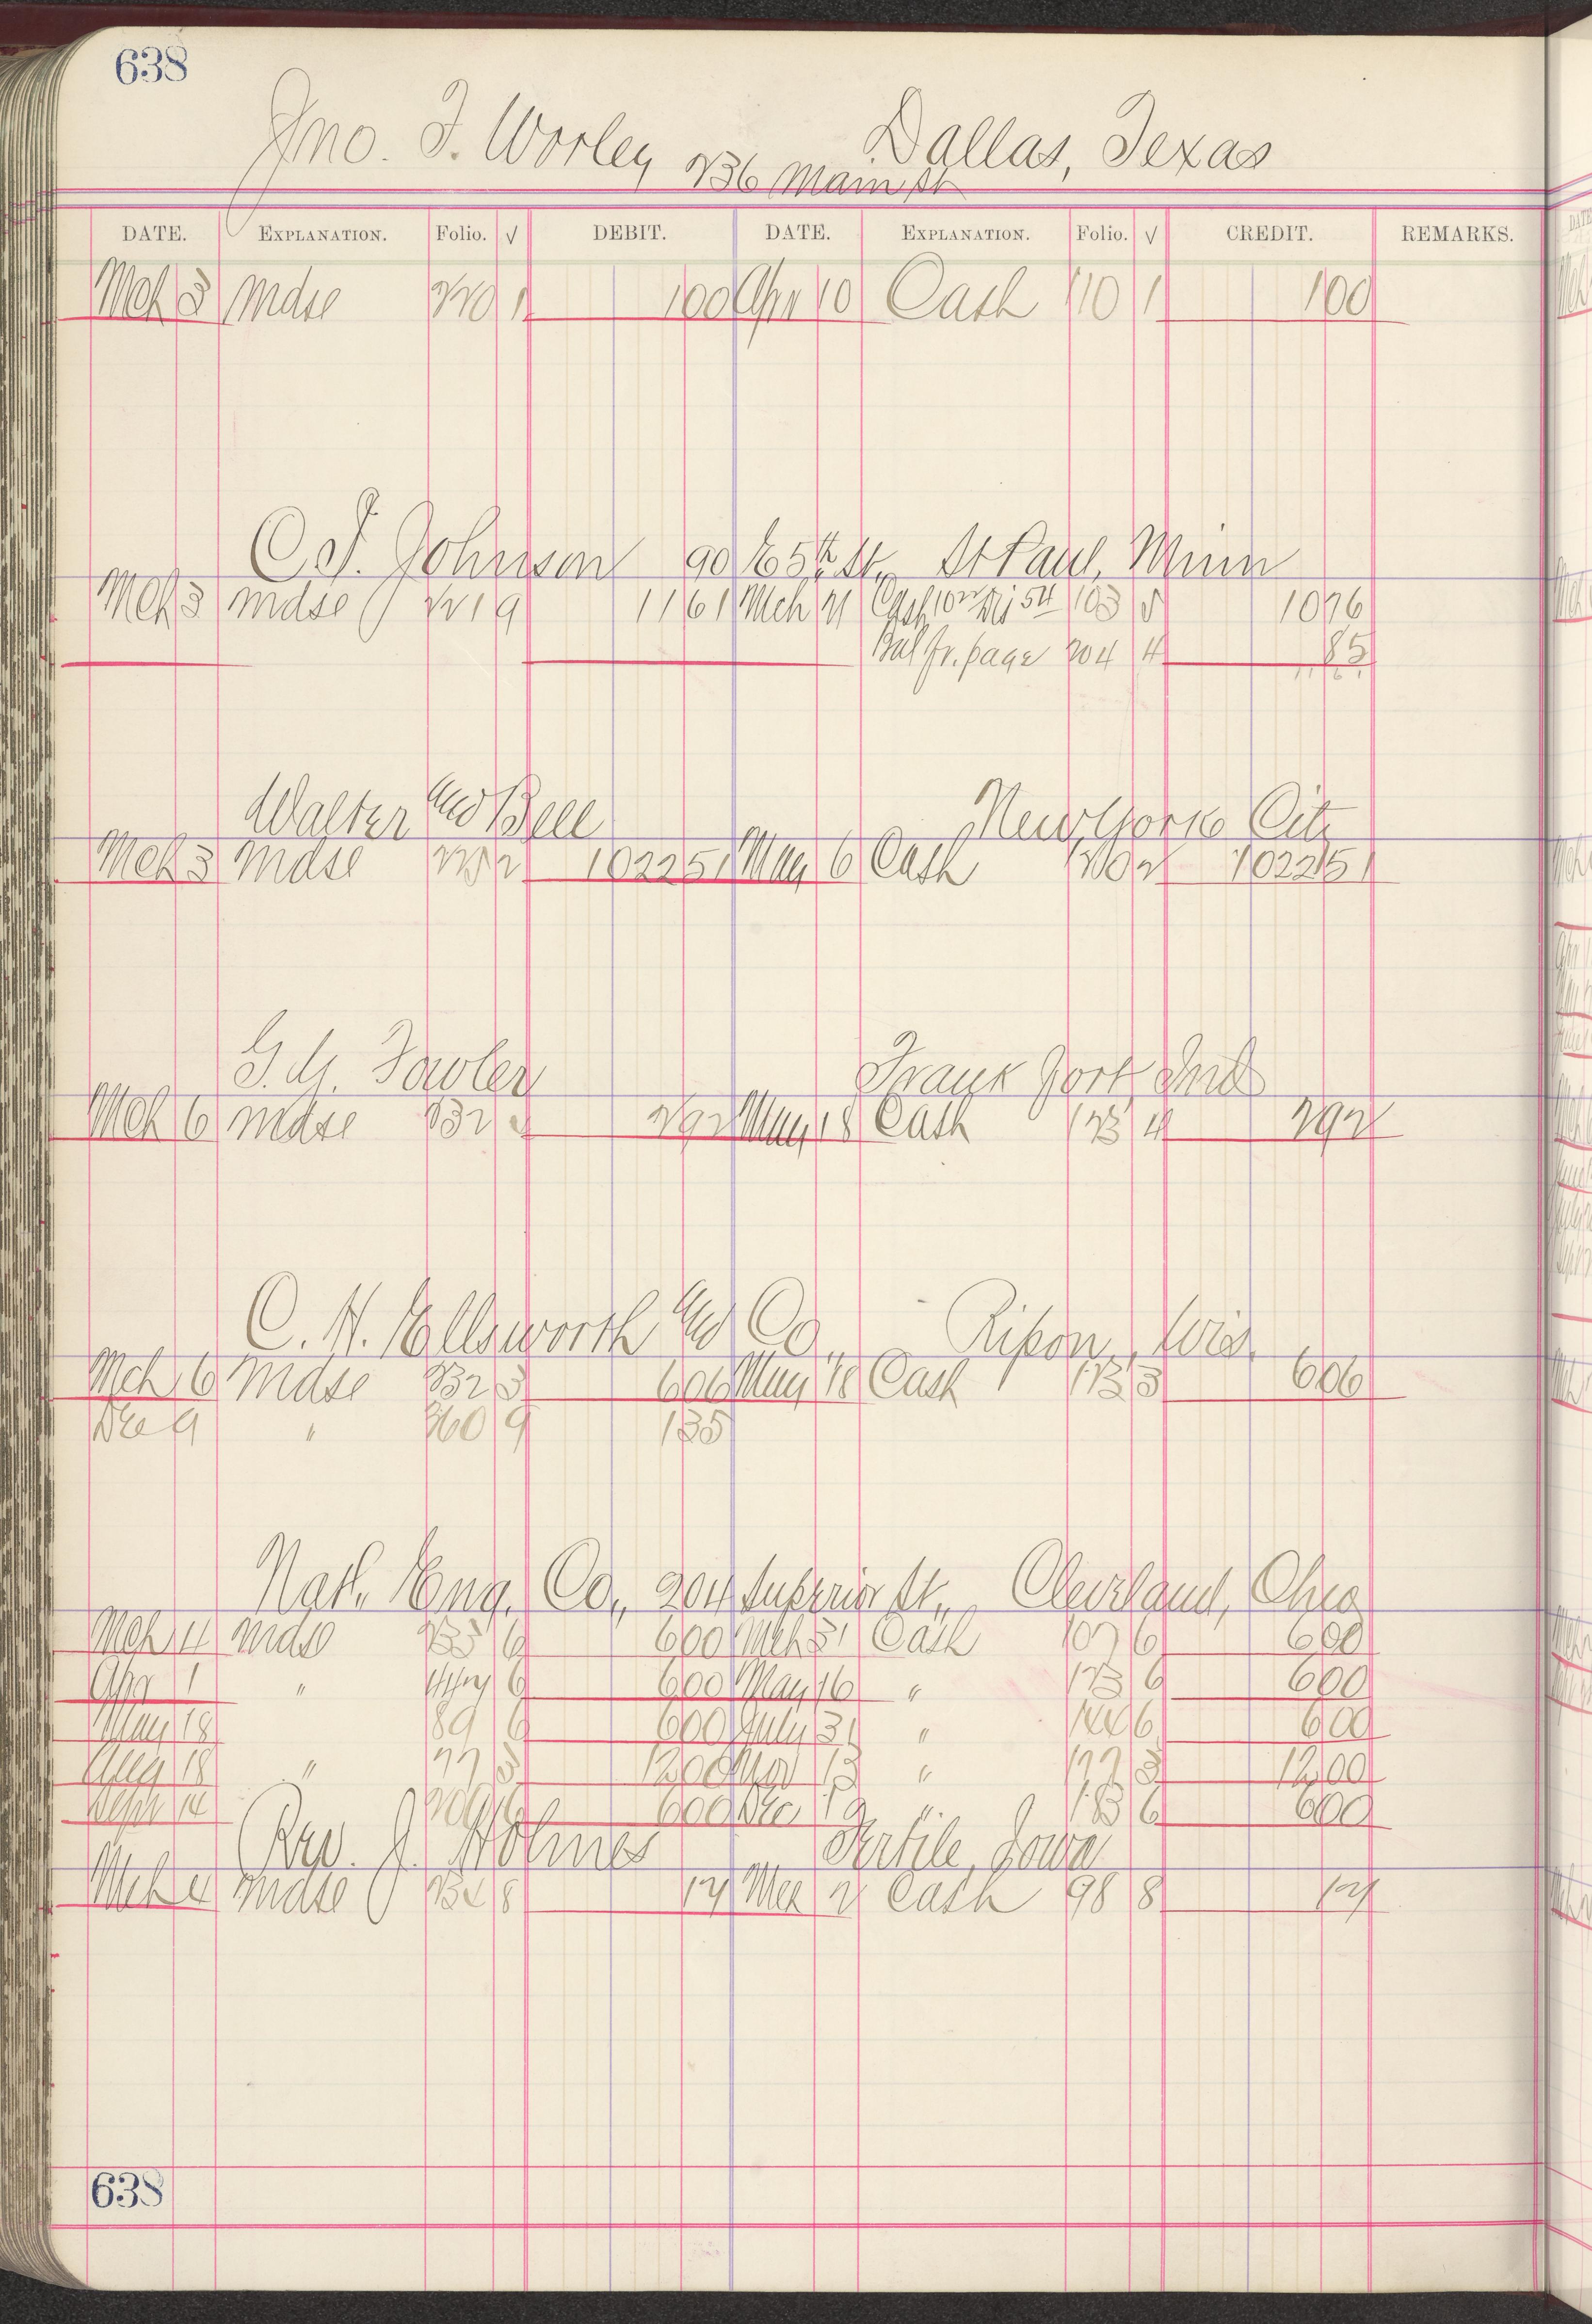 638
Jno. F. Worley Dallas, Texas
236 Main St
DATE. EXPLANATION. Folio. √ DEBIT. DATE. EXPLANATION. Folio. √ CREDIT. REMARKS.
Mch 3 Mdse 220 1 100 Apr 10 Cash 110 1 100
C. F. Johnson 90 E 5th St., St Paul, Minn
Mch 3 Mdse 221 9 1161 Mch 21 Cash 103 1076
Bal fr. page 204 4 85
Walter and Bell New York City
Mch 3 Mdse 2 102251 May 6 Cash 120 2 102251
G. M. Fowler Frankfort, Ind
Mch 6 Mdse 232 292 May 18 Cash 123 4 292
C. H. Ellsworth and Co., Ripon, Wis.
Mch 6 Mdse 232 3 606 May 18 Cash 123 3 606
Dec 9 " 360 9 135
Natl. Eng. Co., 204 Superior St., Cleveland, Ohio
Mch 4 Mdse 6 600 Mch 31 Cash 107 6 600
Apr 1 " 6 600 May 16 " 123 6 600
May 18 89 6 600 July 31 " 144 6 600
Aug 18 " 3 1200 Nov 13 " 177 3 1200
Sept 14 6 600 Dec " 6 600
Rev. J. Holmes Fertile, Iowa
Mch 4 Mdse 8 17 Mch 2 Cash 98 8 17
638